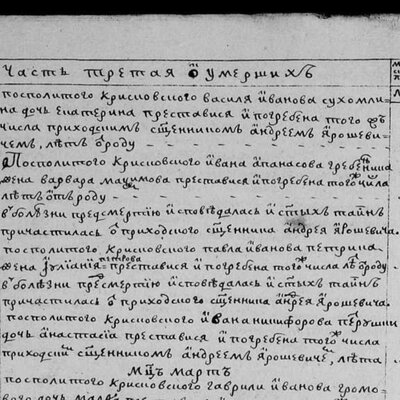 Часть третая ѿ умершихъ
посполитого крисковского василя іванова сухомли
на дочь екатерина преставися и погребена того ... 
числа приходскимъ сщенникомъ андреем ярошеви
чем, лѣтъ ѿ роду
Посполитого крисковского ивана апанасова гребенника
жена варвара ... преставися и погребена того ж числа
лѣтъ ѿ роду
в болѣзни предсмертію исповѣдалась и стыхъ таинъ
причастилась ѿ приходского сщенника андрея ярошевича.
посполитого крисковского павла иванова петрика
жена іулианія петрова преставися и погребена того ж числа лѣтъ ѿ роду
в болѣзни пресмертію исповѣдалась и стыхъ таинъ
причастилась ѿ приходского сщенника андрея ярошевича.
посполитого крисковского ивана никифорова
дочь анастасіа преставися и погребена того ж числа
приходским сщенником андреем ярошевичем, лѣта
мцъ мартъ
посполитого крисковского гаврили иванова громо
вого дочь